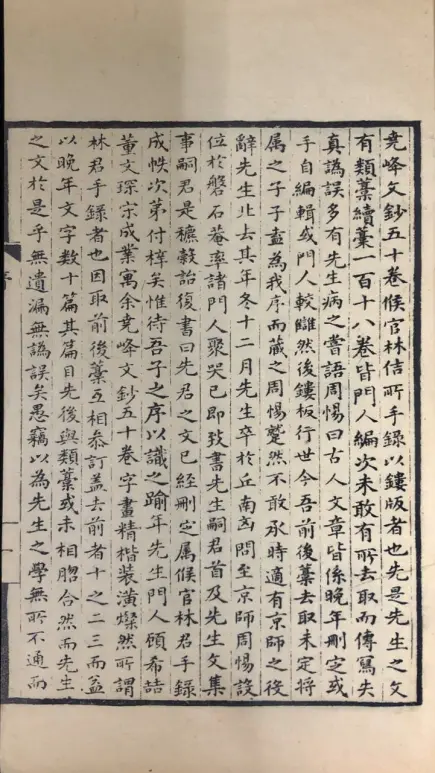 堯峰文鈔五十卷候官林佶所手錄以鏤版者也先是先生之文
有類藁續藁一百十八卷皆門人編次未敢有所去取而傳寫失
真譌誤多有先生病之嘗語周惕曰古人文章皆係晚年刪定或
手自編輯或門人較讎然後鏤板行世今吾前後藁去取未定將
属之子子盍為我序而藏之周惕蹙然不敢承時適有京師之役
辭先生北去其年冬十二月先生卒於丘南凶問至京師周惕設
位於磐石菴率諸門人聚哭已即致書先生嗣君首及先生文集
事嗣君是穮穀詒復書曰先君之文已經刪定属候官林君手錄
成帙次第付梓矣惟待吾子之序以識之踰年先生門人顧希喆
董文琛宋成業寓余堯峰文鈔五十卷字畫精楷裝潢燦然所謂
林君手錄者也因取前後藁互相叅訂盖去前者十之二三而益
以晚年文字數十篇其篇目先後與類藁或未相脗合然而先生
之文於是乎無遺漏無譌誤矣愚竊以為先生之學無所不通而